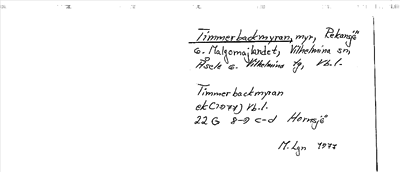 Timmerbackmyran, myr, Rekansjö
G. Malgomajlandet, Vilhelmina sn,
Åsele G. Vilhelmina tg, Vb.l.
Timmerbackmyran
ek(1077) Vb.l.
22 G 8-9 c-d Hornsjö
M.Lgn 1977